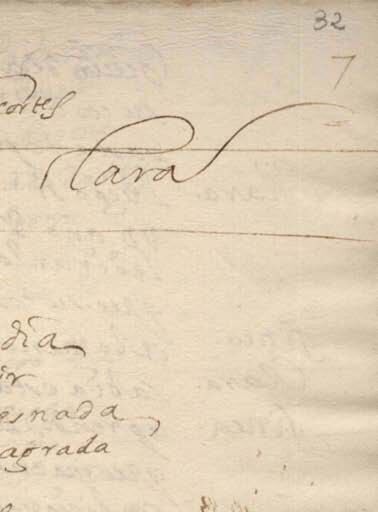 32
7
cortes
Clara
dia
ir
esnada
agrada